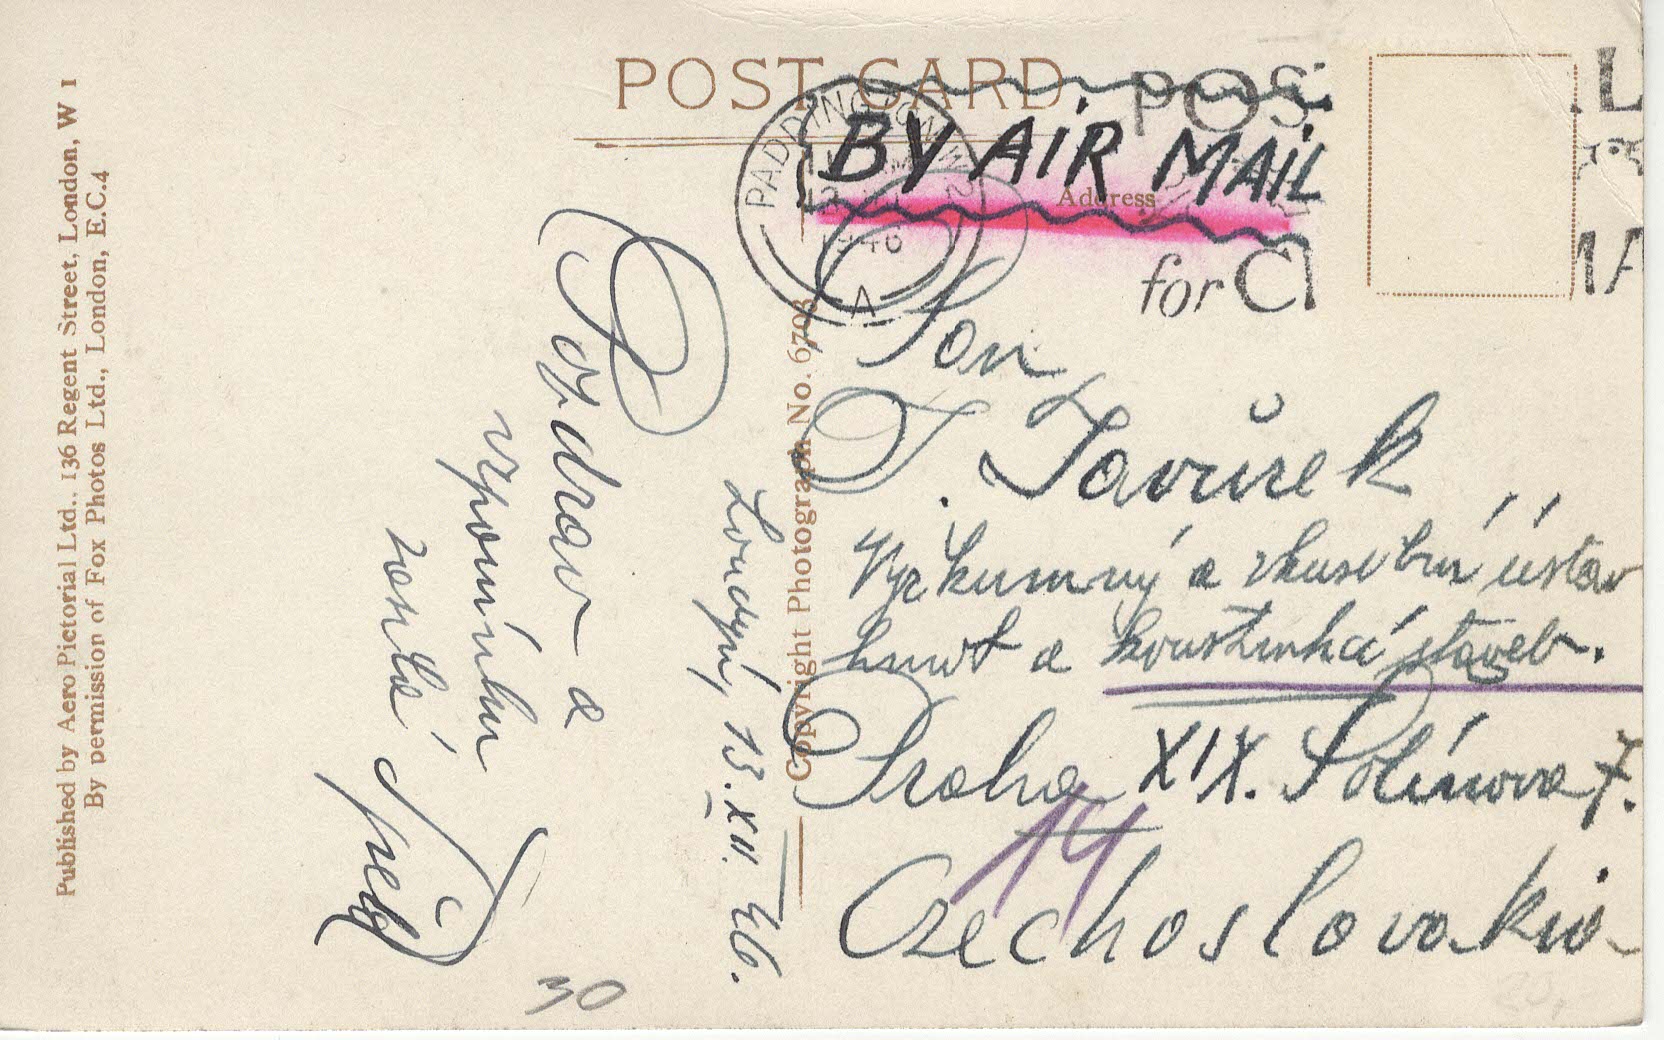 POST CARD
PADDINGTON W.2
1946
A
POS
for C
L
MA
BY AIR MAIL
Address
Pan
J. Tavůrek
Výzkumný a zkušební ústav
hmot a konstrukcí staveb.
Praha XIX. Solínova 7.
14
Czechoslovakia
Londýn, 13.XII.46.
Pozdrav a
vzpomínku
zasílá
30
Copyright Photograph No. 6703
Published by Aero Pictorial Ltd., 136 Regent Street, London, W 1
By permission of Fox Photos Ltd., London, E.C.4